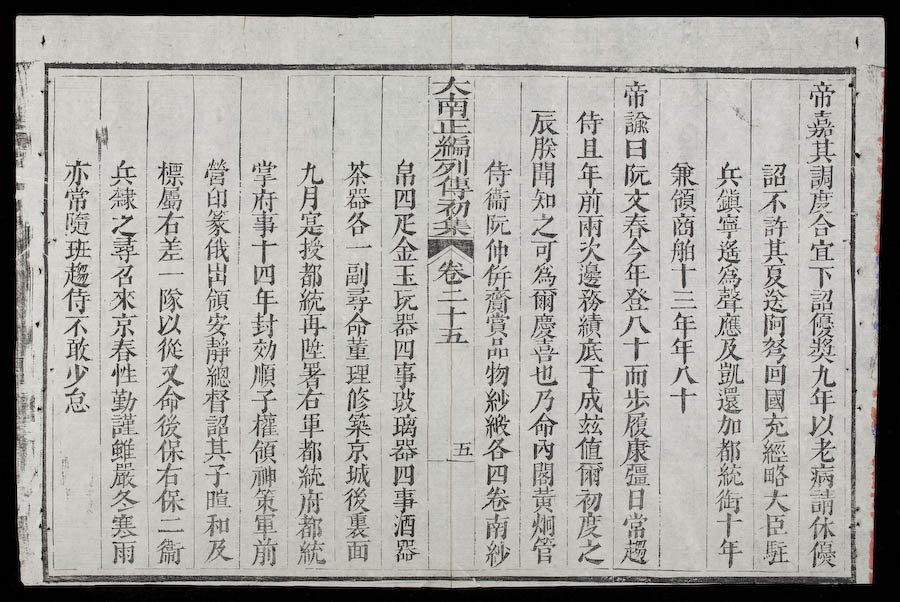 帝嘉其調度合宜下詔優奬九年以老病請休優
詔不許其夏送阿弩回國充經略大臣駐
兵鎭寧遙爲聲應及凱還加都統銜十年
兼領商舶十三年年八十
帝諭曰阮文春今年登八十而步履康彊日常趨
侍且年前兩次邊務績底于成兹值爾初度之
辰朕聞知之可為爾慶喜也乃命內閣黃炯管
侍衞阮仲併齎賞品物紗緞各四卷南紗
大南正編列傳初集 卷二十五 五
帛四疋金玉玩器四事玻璃器四事酒器
茶器各一副尋命董理修築京城後裏面
九月寔授都統再陞署右軍都統府都統
掌府事十四年封効順子權領神策軍前
營印篆俄出領安靜總督詔其子暄和及
標屬右差一隊以從又命後保右保二衞
兵隸之尋召來京春性勤謹雖嚴冬寒雨
亦常隨班趨侍不敢少怠